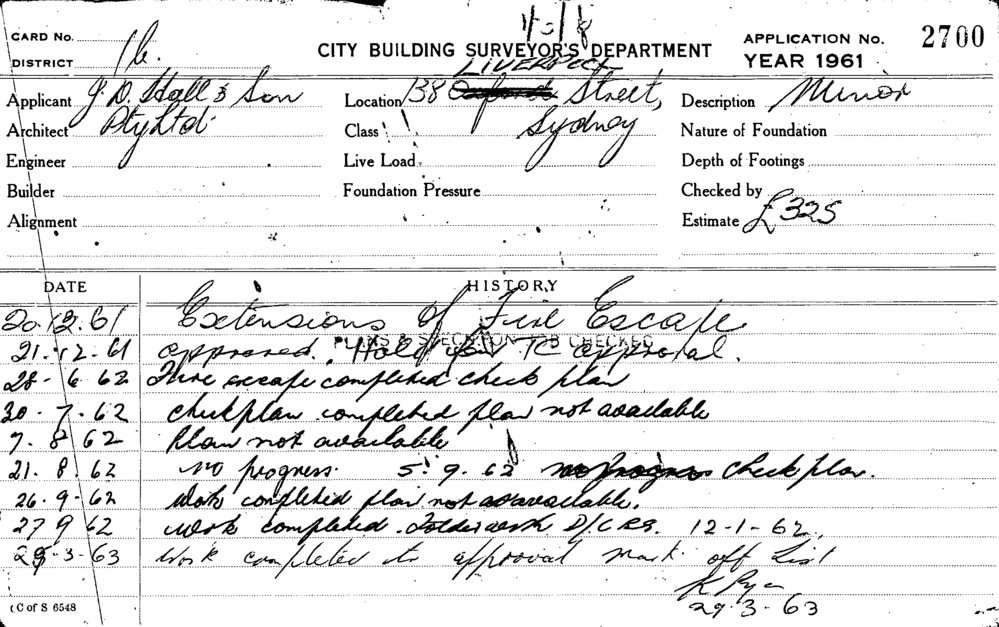 CARD No.
DISTRICT
CITY BUILDING SURVEYOR'S DEPARTMENT
APPLICATION No. 2700
YEAR 1961
Applicant J. D. Hall & Son
Architect Pty Ltd.
Engineer
Builder
Alignment
LIVERPOOL
Location 138 Oxford Street,
Class Sydney
Live Load
Foundation Pressure
Description Minor
Nature of Foundation
Depth of Footings
Checked by
Estimate £325
DATE HISTORY
20.12.61 Extensions of Fire Escape
PLANS & SPECN CHECKED
21.12.61 approved. Hold for TC approval.
28-6-62 Fire escape completed check plan
30-7-62 check plan completed plan not available
7.8.62 Plan not available
21.8.62 no progress. 5.9.62 no progress check plan.
26.9.62 Work completed plan not available.
27 9 62 work completed. 12-1-62.
29-3-63 Work completed to approval mark off List
K Rya
29.3-63
(C of S 6548